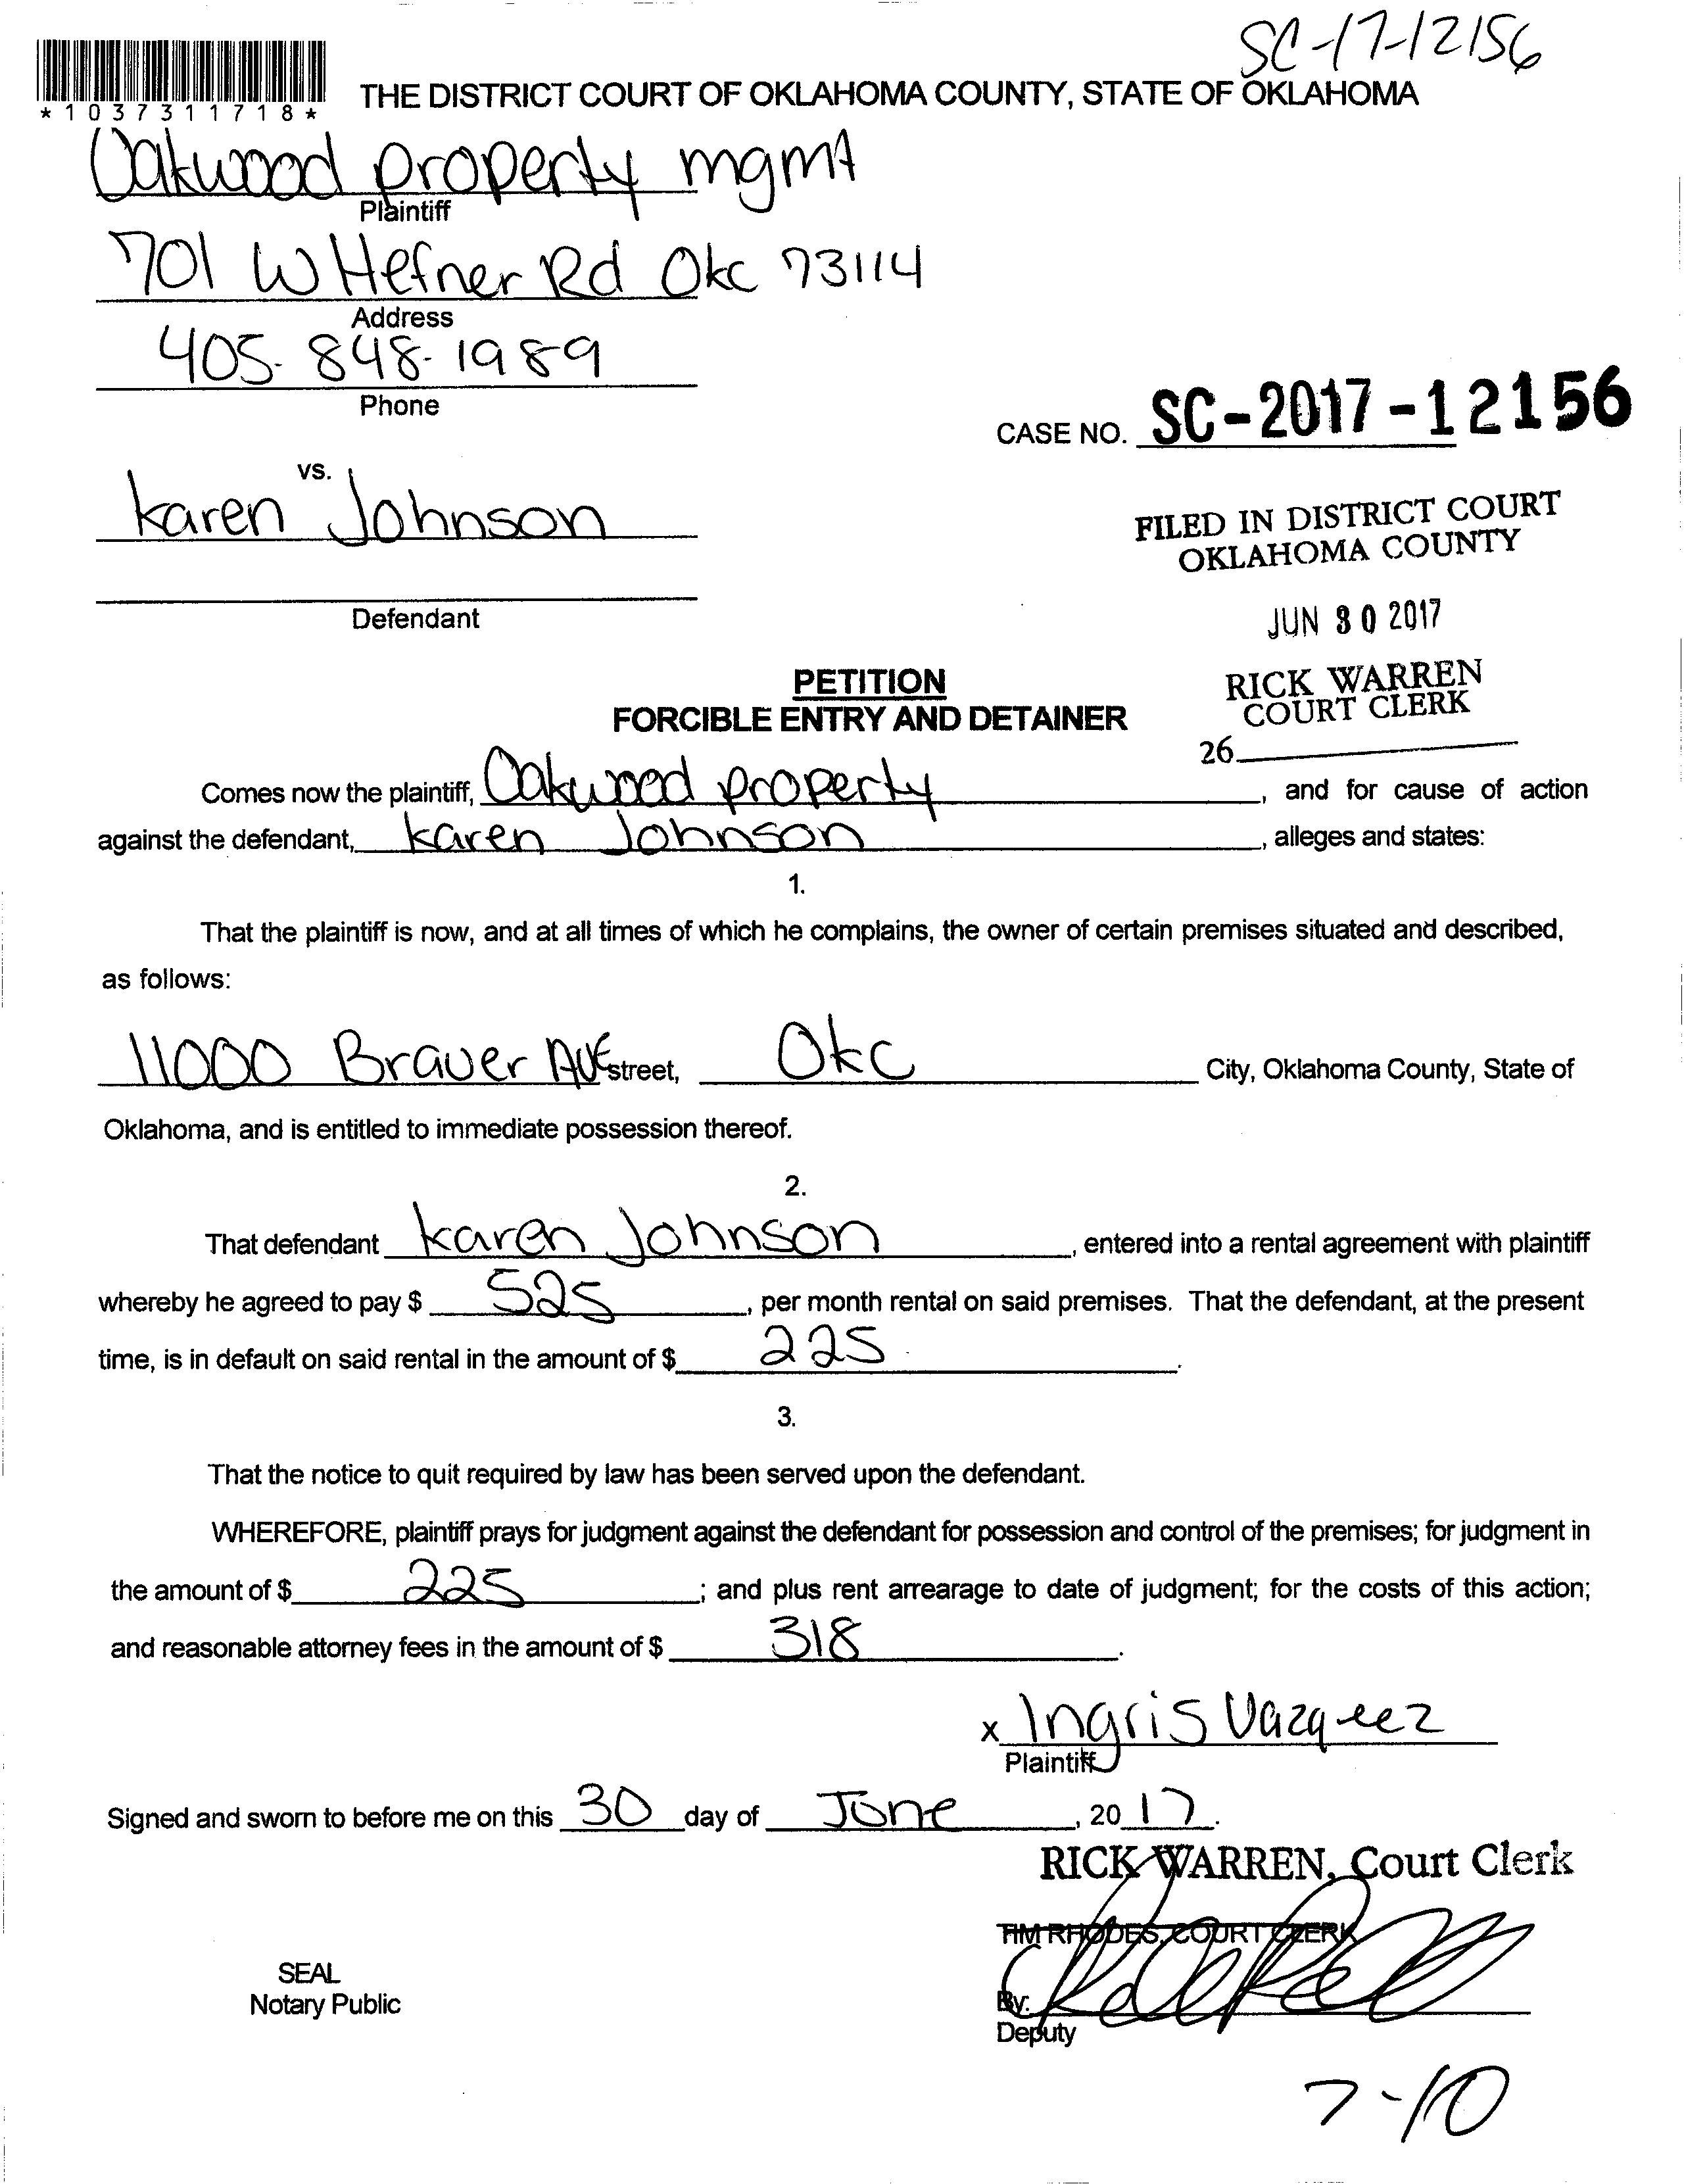 SC-17-12156
*1037311718*
THE DISTRICT COURT OF OKLAHOMA COUNTY, STATE OF OKLAHOMA
Oakwood property mgmt
Plaintiff
701 W Hefner Rd Okc 73114
Address
405-848-1989
Phone
CASE NO. SC-2017-12156
vs.
karen Johnson
FILED IN DISTRICT COURT
OKLAHOMA COUNTY
Defendant
JUN 30 2017
PETITION
FORCIBLE ENTRY AND DETAINER
RICK WARREN
COURT CLERK
26
Comes now the plaintiff, Oakwood property, and for cause of action
against the defendant, karen Johnson, alleges and states:
1.
That the plaintiff is now, and at all times of which he complains, the owner of certain premises situated and described,
as follows:
11000 Brauer Ave street, Okc City, Oklahoma County, State of
Oklahoma, and is entitled to immediate possession thereof.
2.
That defendant karen Johnson, entered into a rental agreement with plaintiff
whereby he agreed to pay $ 525, per month rental on said premises. That the defendant, at the present
time, is in default on said rental in the amount of $ 225.
3.
That the notice to quit required by law has been served upon the defendant.
WHEREFORE, plaintiff prays for judgment against the defendant for possession and control of the premises; for judgment in
the amount of $ 225; and plus rent arrearage to date of judgment; for the costs of this action;
and reasonable attorney fees in the amount of $ 318.
x Ingris Vazquez
Plaintiff
Signed and sworn to before me on this 30 day of June, 2017.
RICK WARREN, Court Clerk
TIM RHODES, COURT CLERK
SEAL
Notary Public
By:
Deputy
7-10